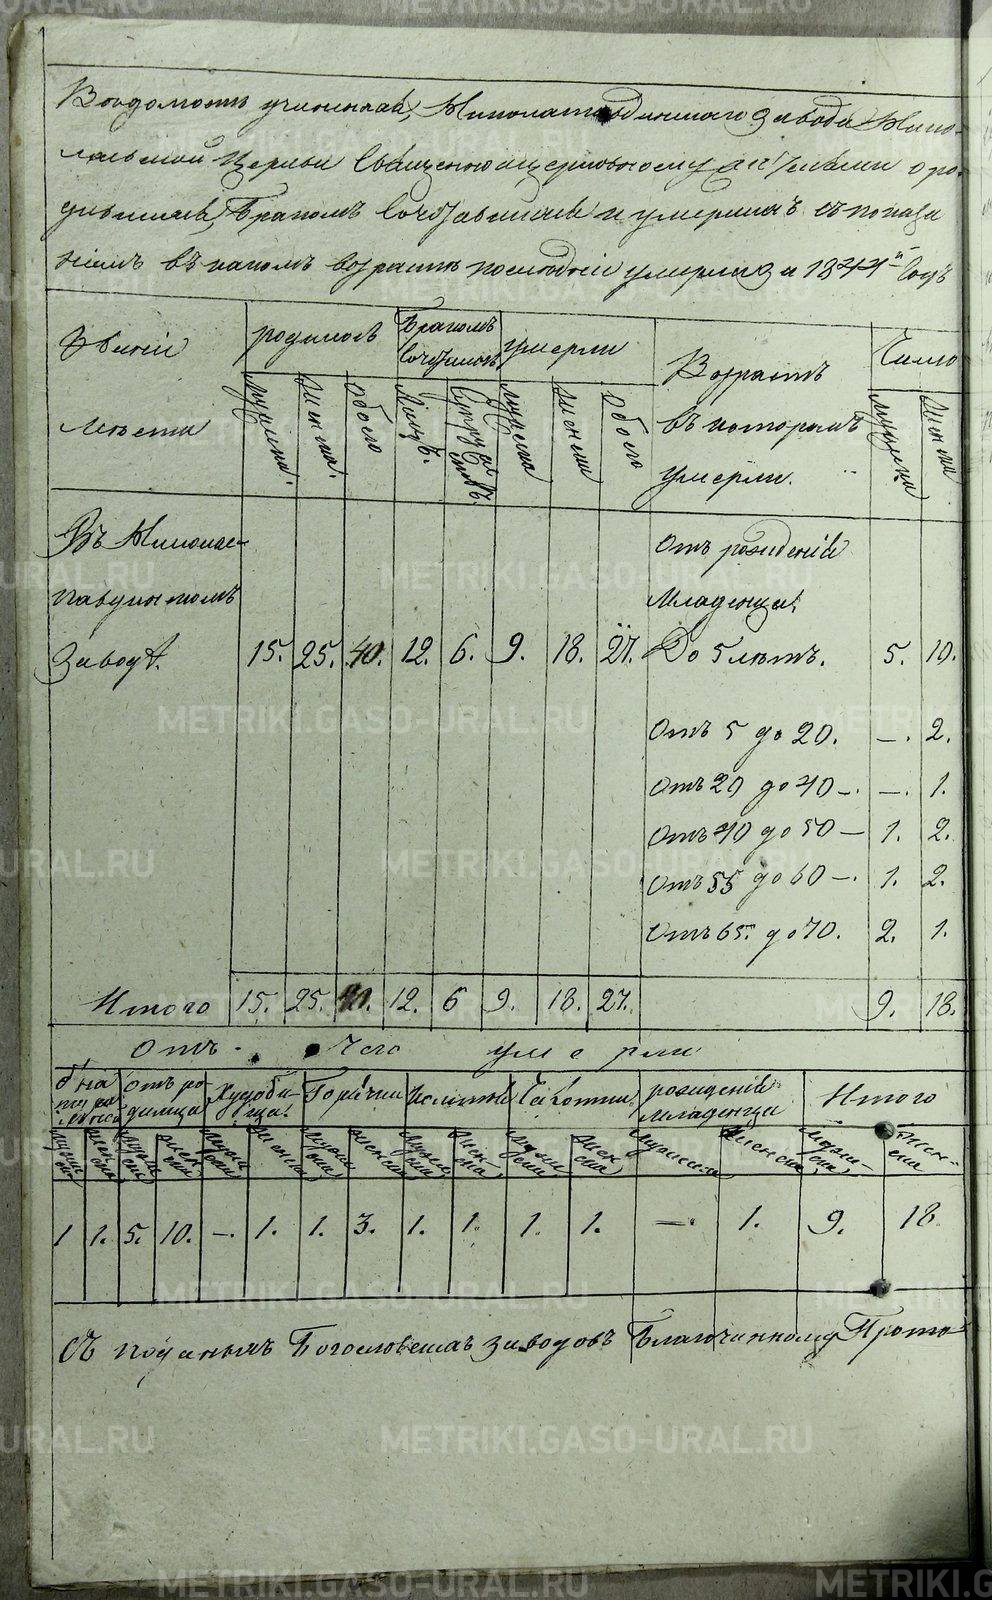 Вѣдомость учиненная, Николаепавдинскаго Завода Нико-
лаевской Церкви Священноцерковнослужителями о ро-
дившихся, Бракомъ сочетавшихся и умершихъ съ показа
нiемъ въ какомъ возрастѣ последнiи умерли за 1844й Годъ
Званiи мѣста
родилось
Бракомъ сочеталось
умерли
Возрастъ въ которомъ умерли.
Число
мужеска. женска. обоего Лицъ. Супружествъ. мужеска женска обоего мужеска женска
Въ Николае-
павдинскомъ
Заводѣ. 15. 25. 40. 12. 6. 9. 18. 27.
Отъ рожденiя
Младенца,
До 5 лѣтъ. 5. 10.
Отъ 5 до 20. —. 2.
Отъ 20 до 40 —. —. 1.
Отъ 40 до 50 — 1. 2.
Отъ 55 до 60 —. 1. 2.
Отъ 65. до 70. 2. 1.
Итого 15. 25. 40. 12. 6 9. 18. 27. 9. 18.
Отъ Чего умерли
отъ ро-
димца
Горячки
Чахотки.
рожденiя
младенца
Итого
мужеска женска мужеска женска мужеска женска мужеска женска мужеска женска мужеска женска мужеска женска мужеска женска
1 1. 5. 10. —. 1. 1. 3. 1. 1. 1. 1. —. 1. 9. 18
Съ подлинымъ Богословскихъ заводовъ Благочинному Прото
METRIKI.GASO-URAL.RU